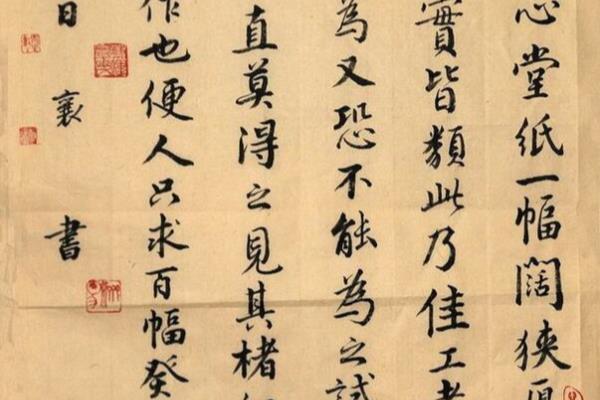 心堂紙一幅闊狹厚
實皆類此乃佳工者
為又恐不能為之試
直莫得之見其楮細
作也便人只求百幅癸
日襄書